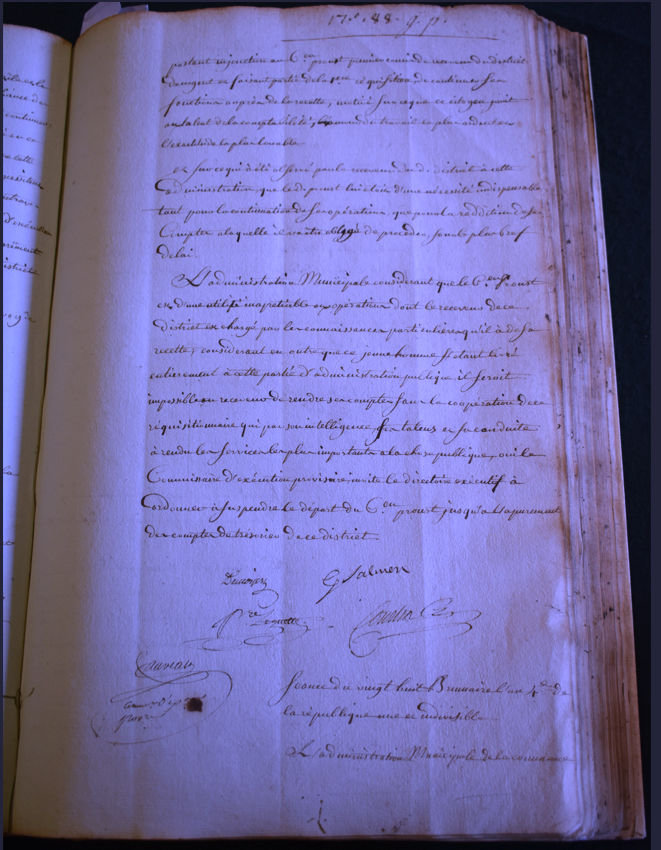 portant injonction au C.en proust premier commis du receveur du district
de faisant partie de la 1ere réquisition, de continuer ses
fonctions auprès de la recette, motivé sur ce que ce citoyen joint
au talent de la comptabilité, du travail le plus
l'exactitude la plus louable
et sur ce qui a été observé par le receveur du d. district à cette
administration que le d. proust lui étoit d'une nécessité indispensable
tant pour la continuation de ses opérations, que pour la reddition de ses
Comptes à laquelle il va être obligé de procéder, sous le plus bref
delai.
L'administration Municipale considerant que le C.en Proust
est d'une utilité inapretiable aux opérations dont le receveur de ce
district est chargé par les connaissances particulieres qu'il a de sa
recette; considerant en outre que ce jeune homme s'étant livré
entierement à cette partie d'administration publique il seroit
impossible au receveur de rendre ses comptes sans la coopération de ce
réquisitionnaire qui par son intelligence, ses talens et sa conduite
a rendu les services les plus importants a la chose publique, oui le
Commissaire d'exécution provisoire, invite le directoire exécutif à
ordonner à suspendre le départ du C.en proust jusqu'à l'apurement
des comptes du trésorier de ce district.
G Salmon
Seance du vingt huit Brumaire l'an 4.e de
la république une et indivisible
L'administration Municipale de la commune